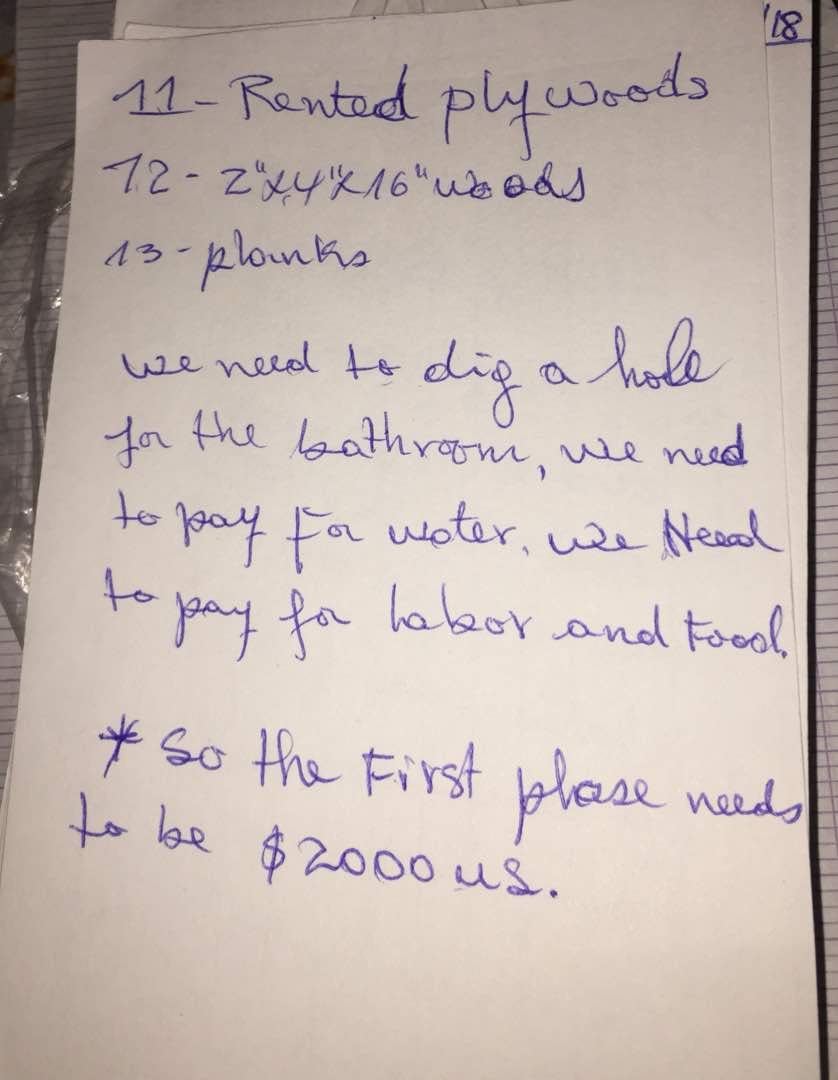 '18
11- Rented plywoods
12- 2"x4"x16" woods
13- planks
we need to dig a hole
for the bathroom, we need
to pay for water, we Need
to pay for labor and Food.
* So the First phase needs
to be $2000 us.